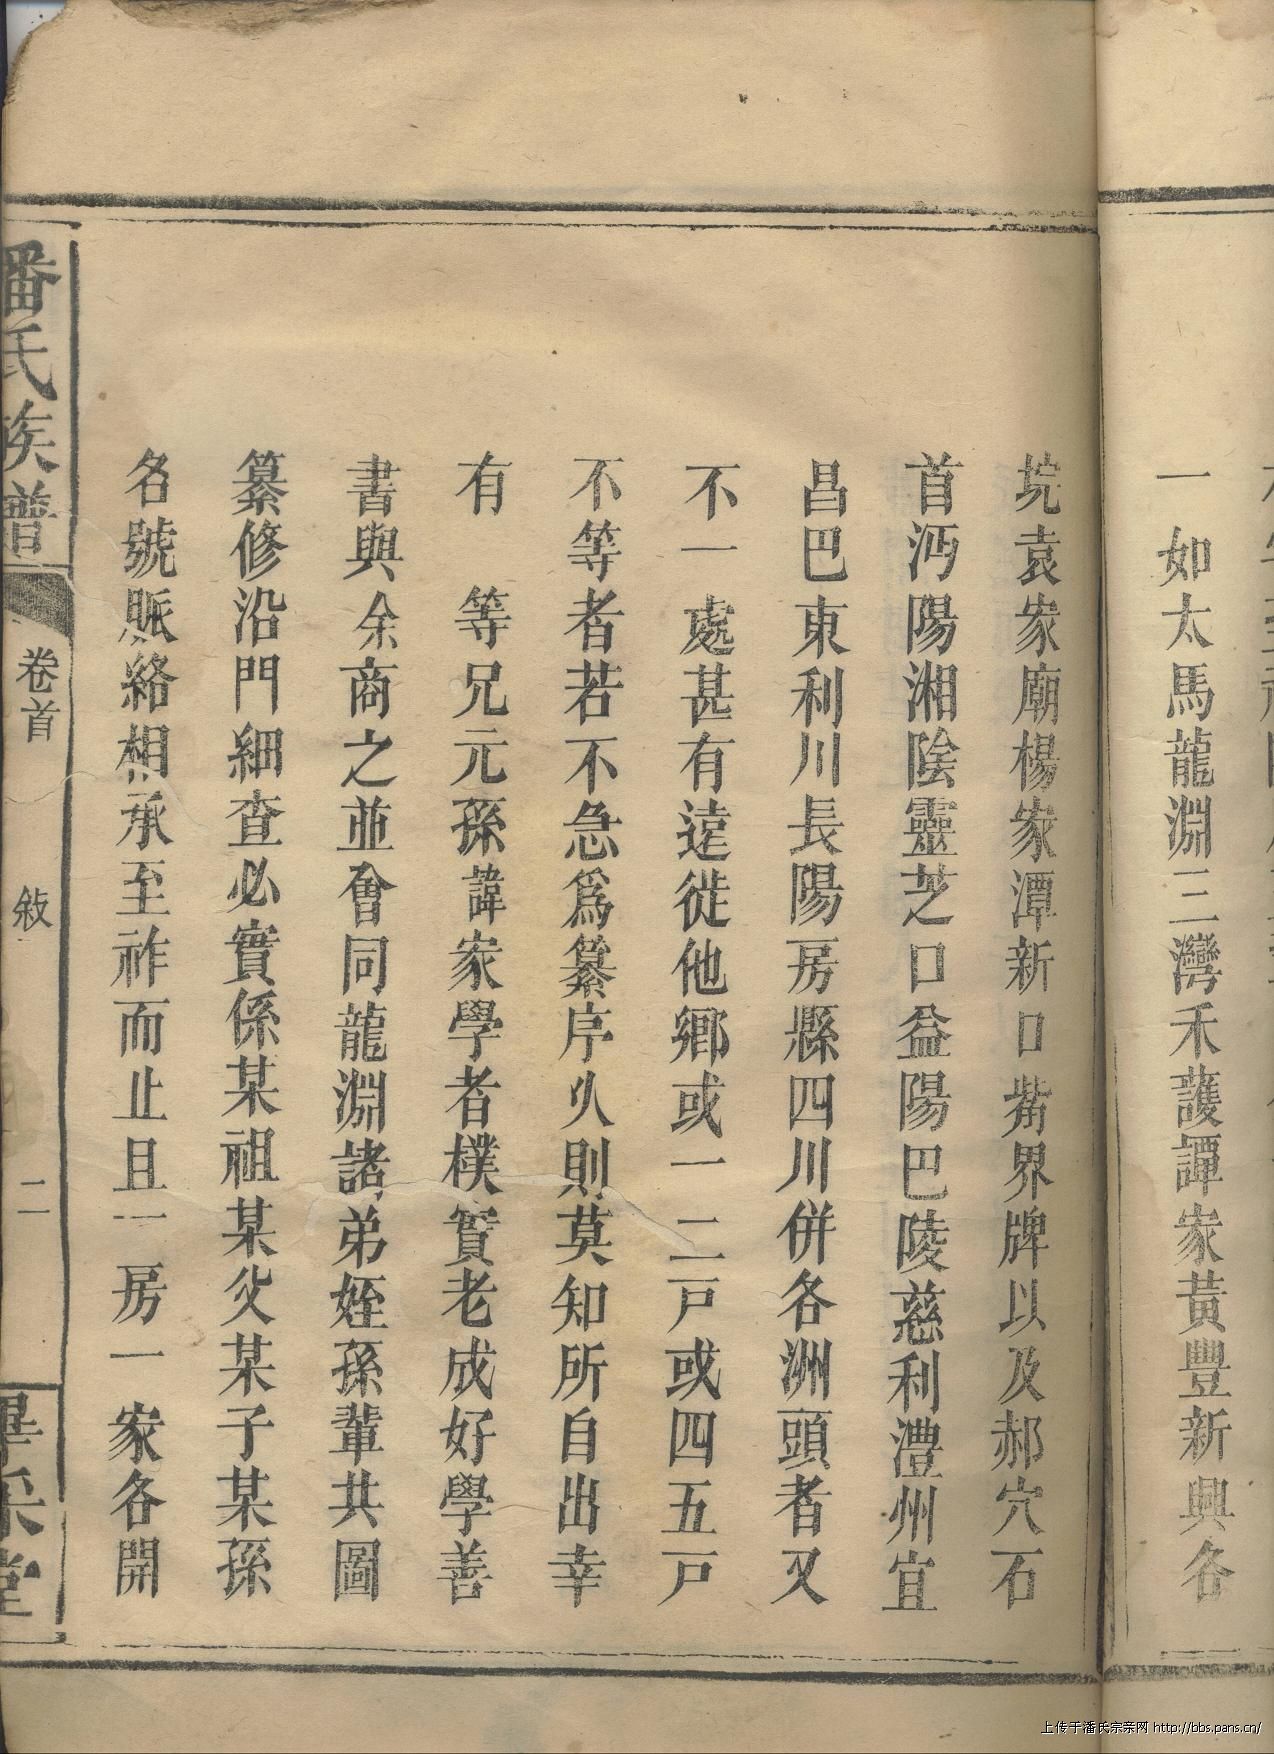 一如太馬龍淵三灣禾護譚家黃豐新興各
垸袁家廟楊家潭新口觜界牌以及郝穴石
首沔陽湘陰靈芝口益陽巴陵慈利澧州宜
昌巴東利川長陽房縣四川併各洲頭者又
不一處甚有遠徙他鄉或一二戸或四五戸
不等者若不急爲纂序久則莫知所自出幸
有 等兄元孫諱家學者樸實老成好學善
書與余商之並會同龍淵諸弟姪孫輩共圖
纂修沿門細查必實係某祖某父某子某孫
名號脈絡相承至祚而止且一房一家各開
潘氏族譜
卷首
敘
二
畢采堂
上传于潘氏宗亲网 http://bbs.pans.cn/